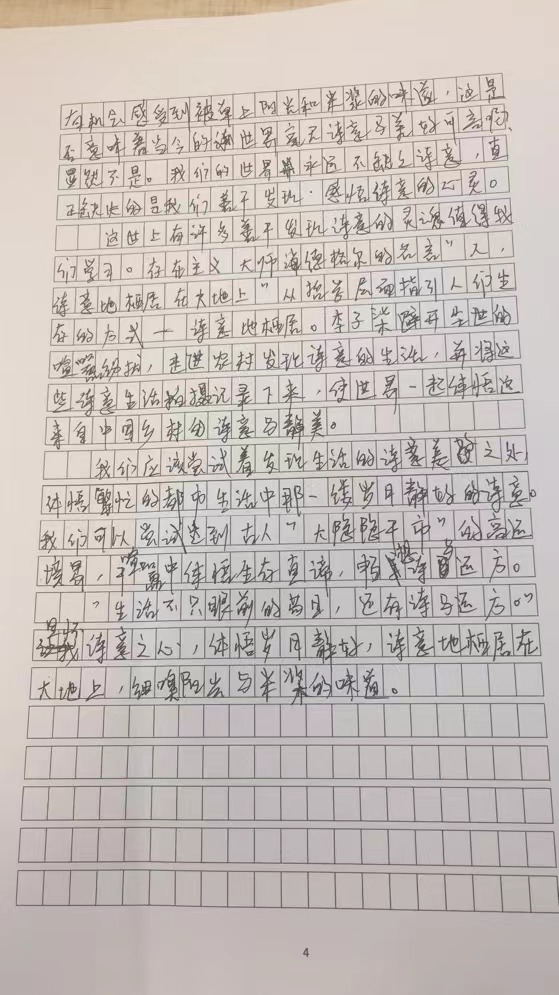 有机会感受到被单上阳光和米浆的味道，这是
否意味着当今的世界毫无诗意与美好可言呢，
显然不是。我们的世界永远不缺乏诗意，真
正缺少的是我们善于发现、感悟诗意的心灵。
这世上有许多善于发现诗意的灵魂值得我
们学习。存在主义大师海德格尔的名言"人，
诗意地栖居在大地上"从哲学层面指引人们生
存的方式——诗意地栖居。李子柒避开尘世的
喧嚣纷扰，走进农村发现诗意的生活，并将这
些诗意生活拍摄记录下来，使世界一起体悟这
来自中国乡村的诗意与静美。
我们应该尝试着发现生活的诗意美之处，
体悟繁忙的都市生活中那一缕岁月静好的诗意。
我们可以尝试达到古人"大隐隐于市"的高远
境界，喧嚣中体悟生存真谛，畅想诗与远方。
"生活不只眼前的苟且，还有诗与远方。"
诗意之心，体悟岁月静好，诗意地栖居在
大地上，细嗅阳光与米浆的味道。
4